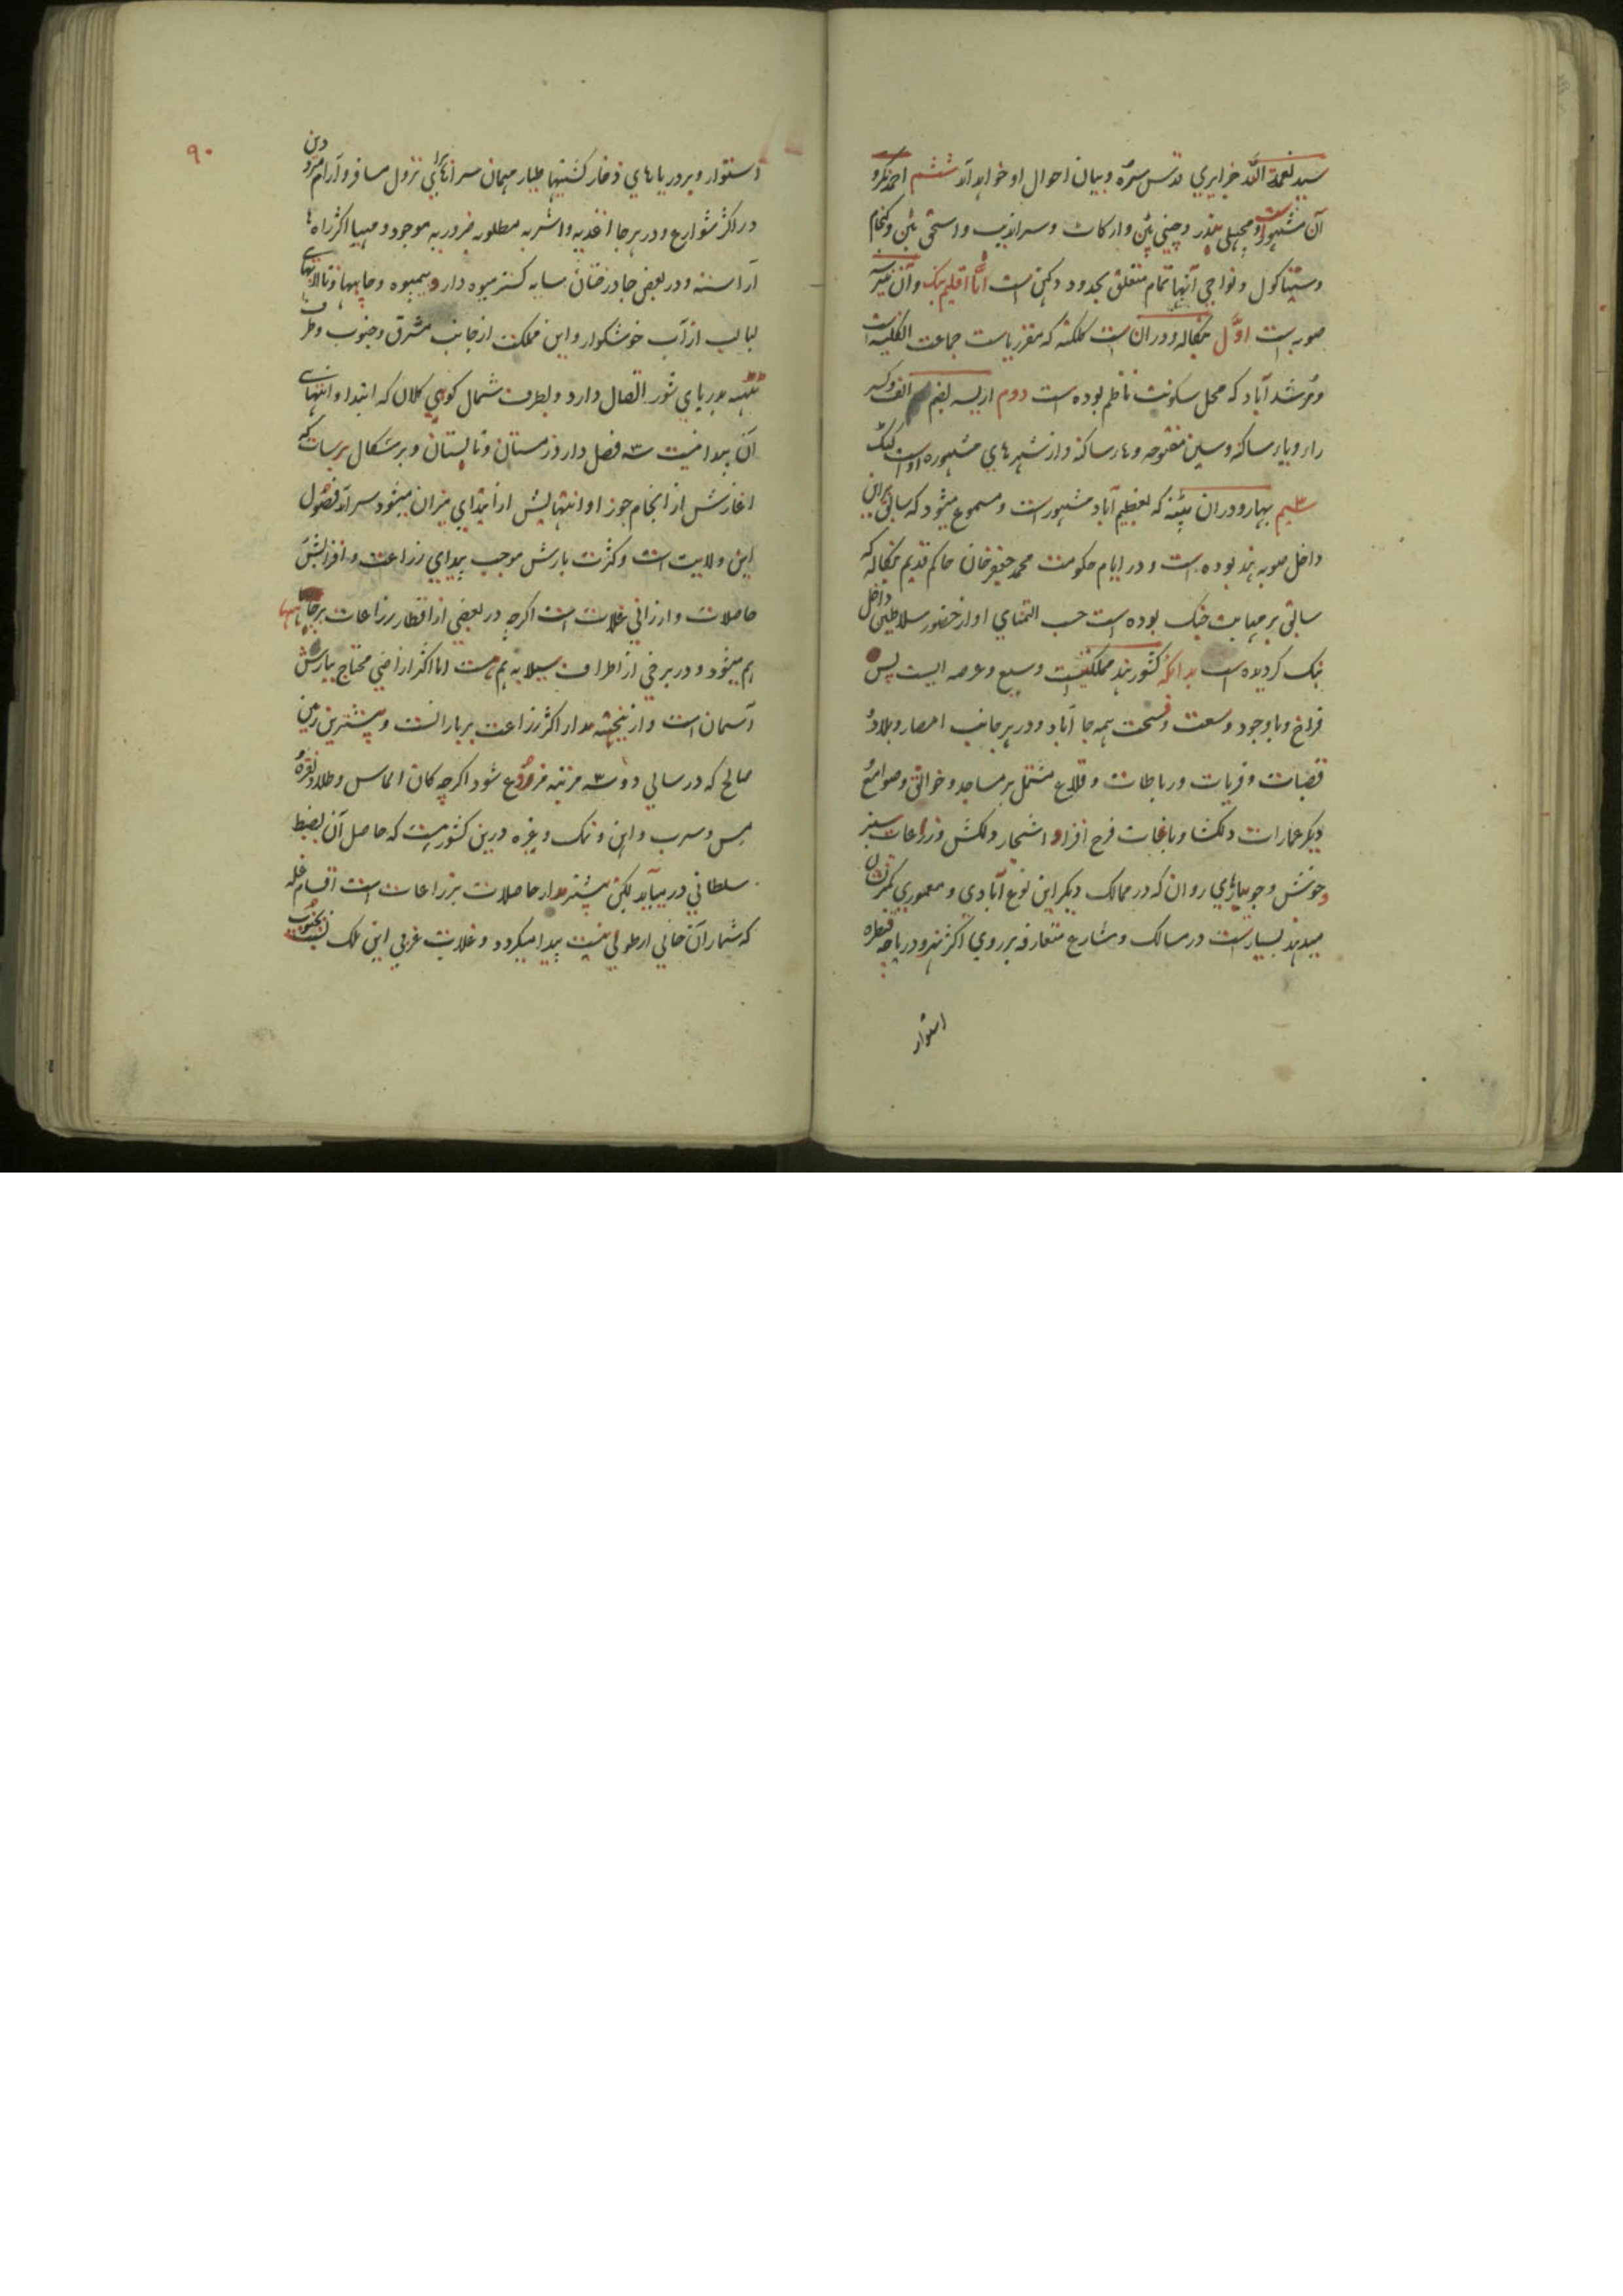 سید نعمة الله جزایری قدس سره و بیان احوال او خواهد آمد ششم احمدنکر و
آن مشهور است و مچهلی بندر و چینی پتن و ارکات و سراندیب و
و سیتاکول و نواحی آنها تمام متعلق بحدود دکهن است اما اقلیم بنک و آن نیز سه
صوبه است اول بنکاله و دران است کلکته که مقر ریاست جماعت انکلیسیه است
و مرشدآباد که محل سکونت ناظم بوده است دوم اریسه بضم الف و کسر
را و یا ساکنه و سین مفتوحه و ها ساکنه و از شهرهای مشهوره او است کتک
سیم بهار و دران پتنه که بعظیم آباد مشهور است و مسموع میشود که سابق بر این
داخل صوبه هند بوده است و در ایام حکومت محمد جعفر خان حاکم قدیم بنکاله که
سابق بر مهابت جنک بوده است حسب التمنای او از حضور سلاطین داخل
بنک کردیده است بدانکه کشور هند مملکتیست وسیع و عرصه ایست بس
فراخ و با وجود وسعت و فسحت همه جا آباد و در هر جانب امصار و بلاد و
قصبات و قریات و رباطات و قلاع مشتمل بر مساجد و خوانق و صوامع و
دیکر عمارات دلکشا و باغات فرح افزا و اشجار دلکش و زراعات سبز
و خوش و جویبارهای روان که در ممالک دیکر این نوع آبادی و معموری کمتر نشان
میدهند بسیار است در مسالک و مشارع متعارفه بر روی اکثر نهر و دریاچه قنطره
استوار
۹۰
استوار و بر دریاهای ذخار کشتیها طیار میهمان سراهای برای نزول مسافر و آرام مترددین
در اکثر شوارع و در هر جا اغذیه و اشربه مطلوبه ضروریه موجود و مهیا اکثر راه ها
آراسته و در بعض جا درختان سایه کستر میوه دار و بیمیوه و چاهها و تالابهای
لبالب از آب خوشکوار و این مملکت از جانب مشرق و جنوب و طرف
تتهه بدریای شور اتصال دارد و بطرف شمال کوهی کلان که ابتدا و انتهای
آن پیدا نیست سه فصل دارد زمستان و تابستان و برشکال برسات که
اغازش از انجام جوزا و انتهایش از ابتدای میزان میشود سرآمد فصول
این ولایت است و کثرت بارش موجب پیدایی زراعت و افزایش
حاصلات و ارزانی غلات است اکرچه در بعضی از اقطار زراعات بر چاهها
هم میشود و در برخی از اطراف سیلابه هم هست اما اکثر اراضی محتاج ببارش
آسمان است و از ینجهته مدار اکثر زراعت بر بارانست و بیشترین زمین
صالح که در سالی دو سه مرتبه مزروع شود اکرچه کان الماس و طلا و نقره و
مس و سرب و اهن و نمک و غیره درین کشور هست که حاصل آن بضبط
سلطانی درمیآید لیکن بیشتر مدار حاصلات بزراعات است اقسام غله
که شمار آن خالی از طولی نیست پیدا میکردد و غلات غربی این ملک